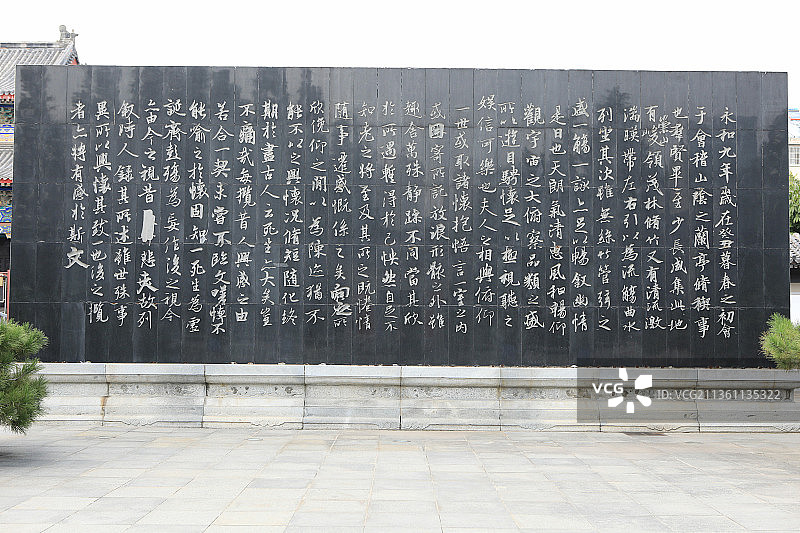 永和九年歲在癸丑暮春之初會
于會稽山陰之蘭亭脩稧事
也羣賢畢至少長咸集此地
有崇山峻領茂林脩竹又有清流激
湍暎帶左右引以為流觴曲水
列坐其次雖無絲竹管弦之
盛一觴一詠亦足以暢敘幽情
是日也天朗氣清惠風和暢仰
觀宇宙之大俯察品類之盛
所以遊目騁懷足以極視聽之
娛信可樂也夫人之相與俯仰
一世或取諸懷抱悟言一室之內
或因寄所託放浪形骸之外雖
趣舍萬殊靜躁不同當其欣
於所遇暫得於己怏然自足不
知老之將至及其所之既惓情
隨事遷感慨係之矣向之所
欣俛仰之閒以為陳迹猶不
能不以之興懷況脩短隨化終
期於盡古人云死生亦大矣豈
不痛哉每攬昔人興感之由
若合一契未嘗不臨文嗟悼不
能喻之於懷固知一死生為虛
誕齊彭殤為妄作後之視今
亦由今之視昔悲夫故列
敘時人錄其所述雖世殊事
異所以興懷其致一也後之攬
者亦將有感於斯文
VCG
VCG211361135322